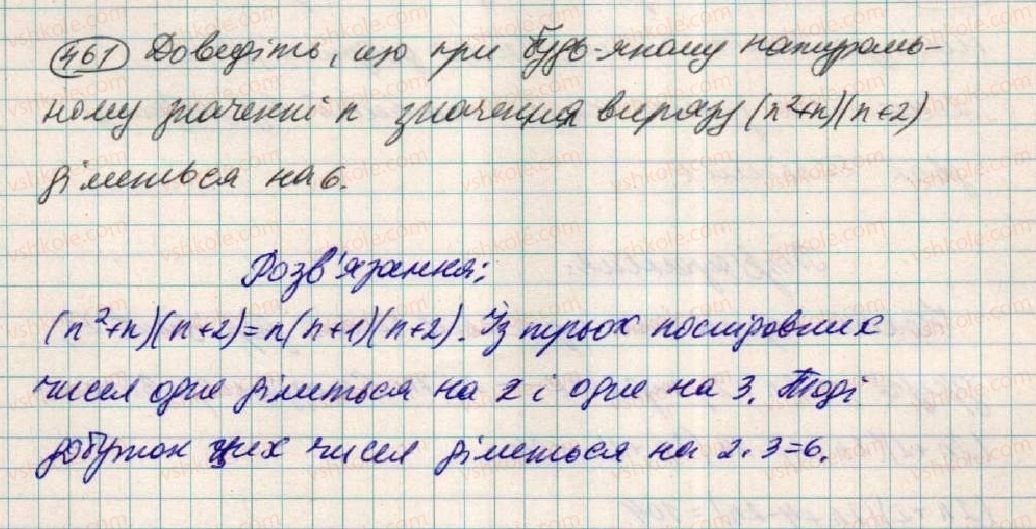 461 Доведіть, що при будь-якому натураль-
ному значенні n значення виразу (n²+n)(n+2)
ділиться на 6.
Розв'язання:
(n²+n)(n+2)=n(n+1)(n+2). Із трьох послідовних
чисел одне ділиться на 2 і одне на 3. Тоді
добуток цих чисел ділиться на 2·3=6.